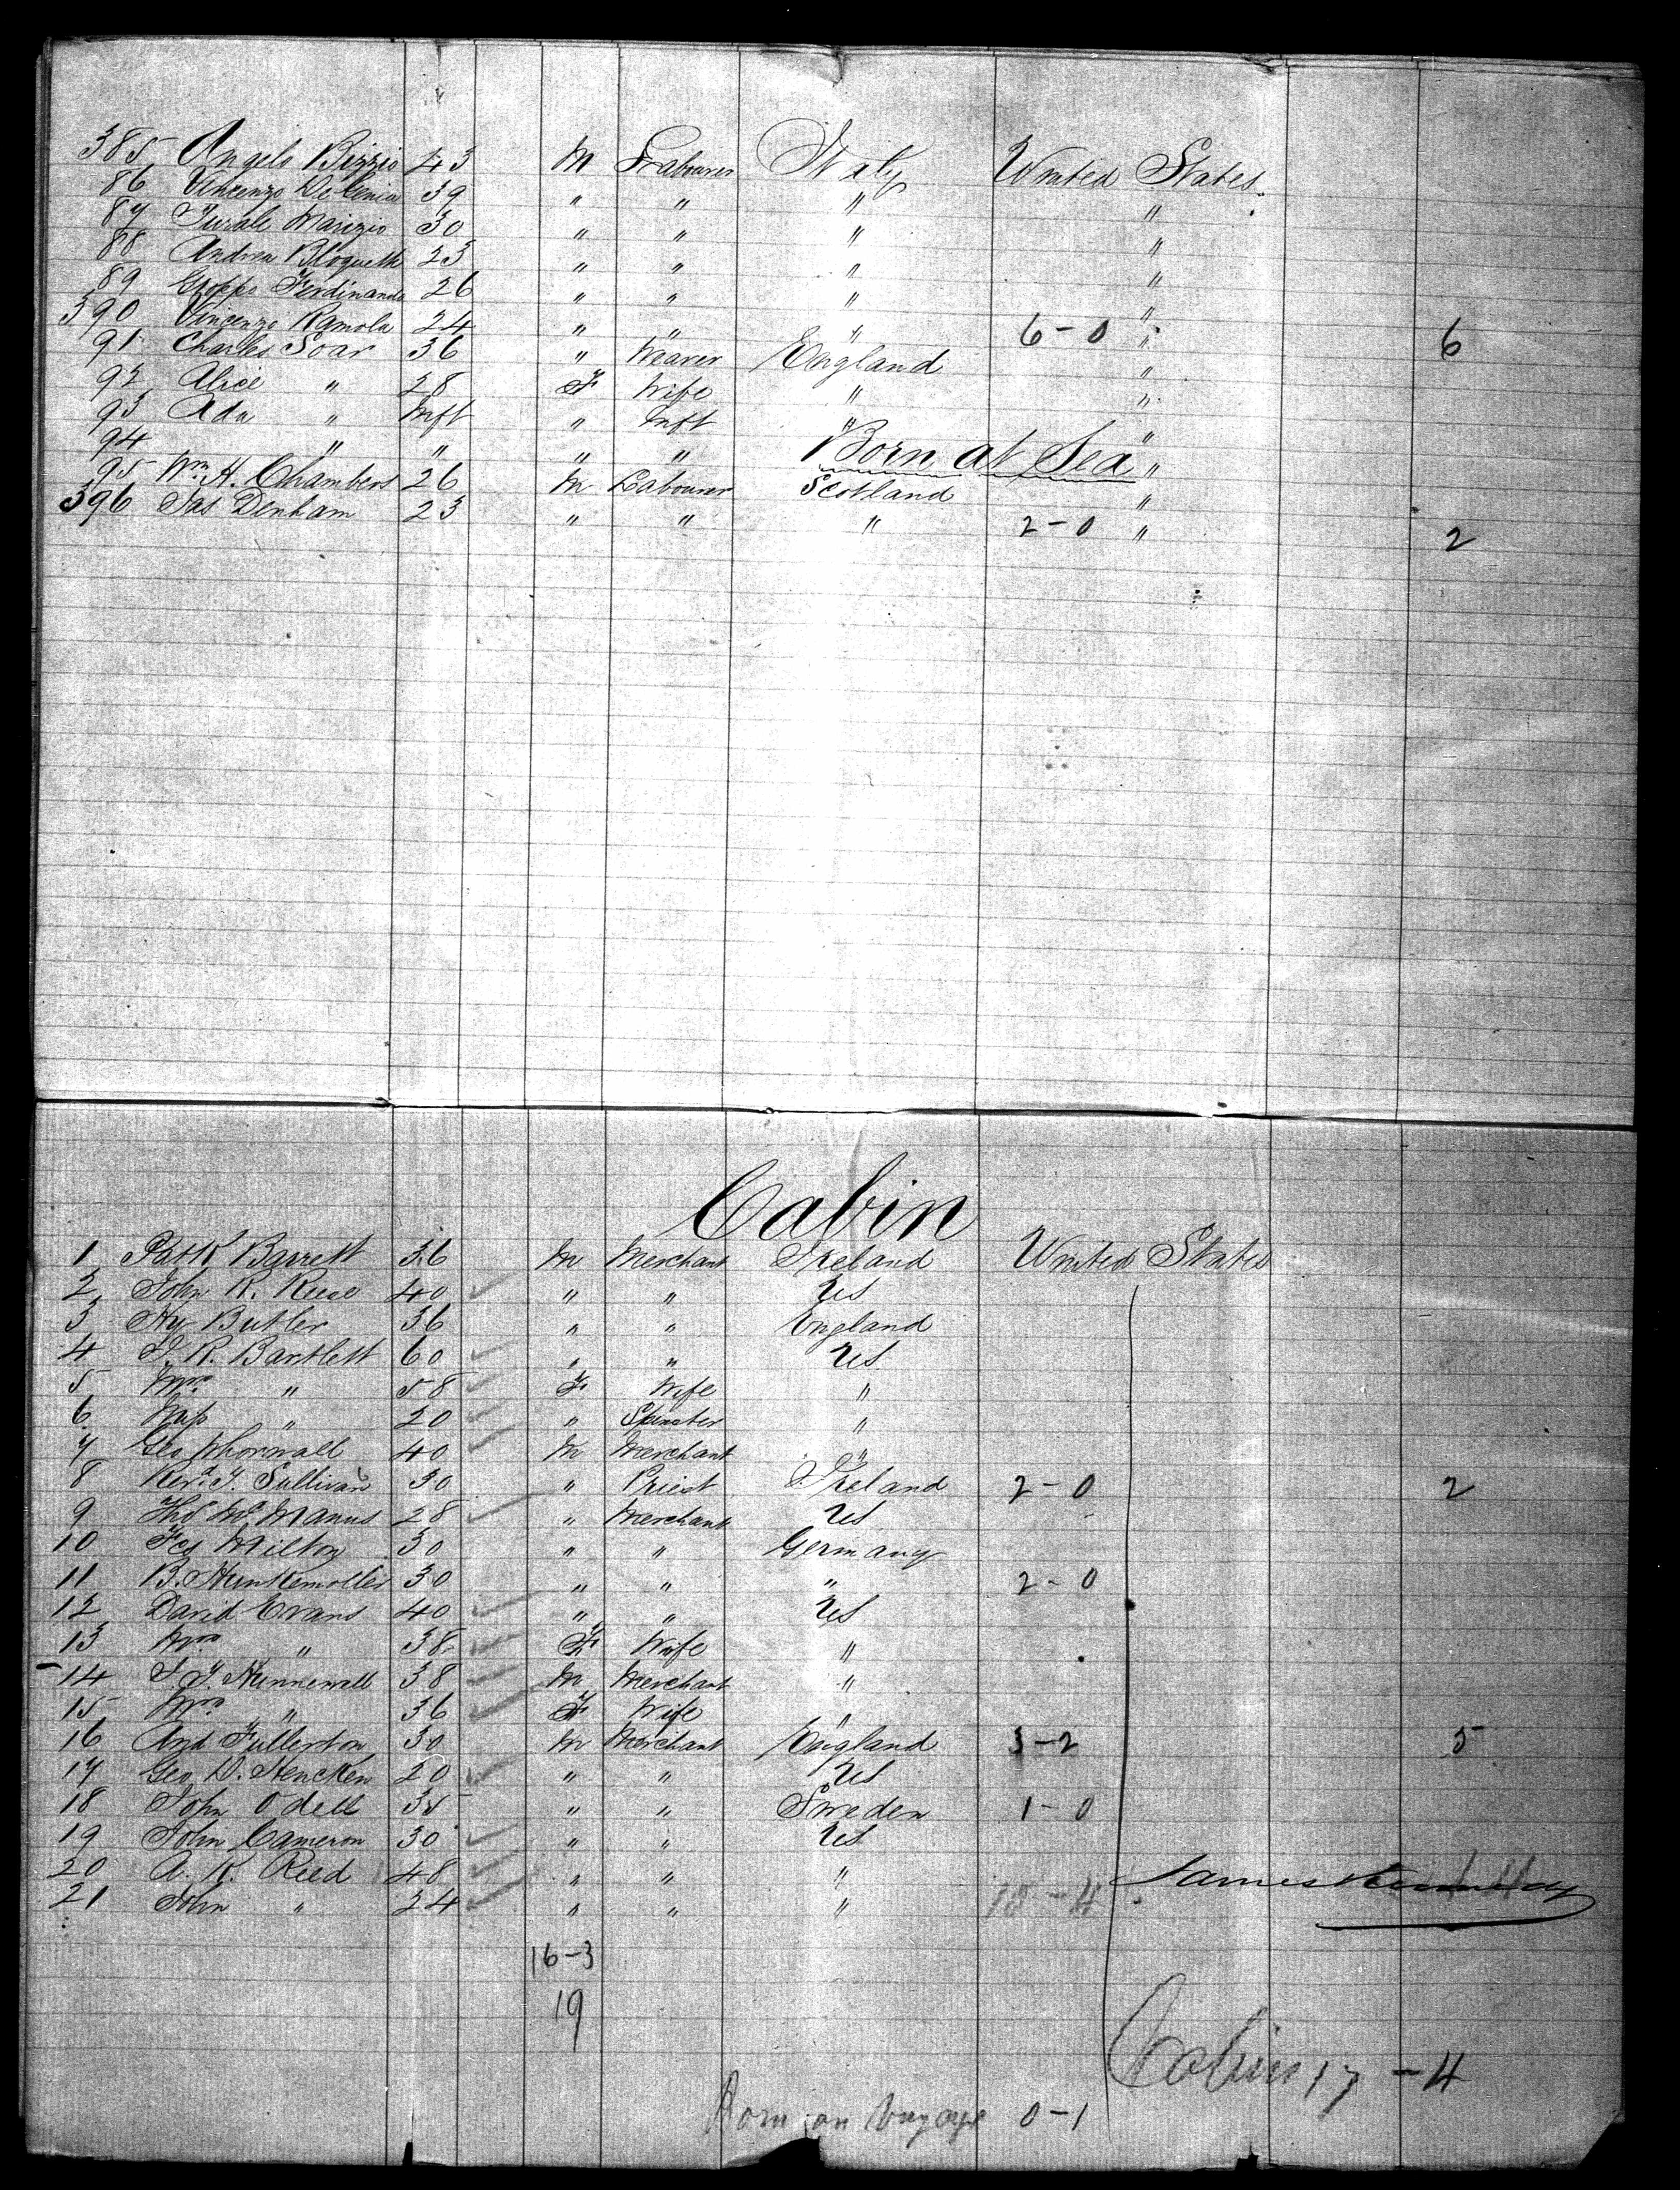 385 Angelo Bizzio 43 M Labourer Italy United States
86 Vincenzo De 39 " " " "
87 Marizio 30 " " " "
88 Andrea 23 " " " "
89 Ferdinando 26 " " " "
390 Vincenzo Ramola 24 " " " 6-0 " 6
91 Charles Soar 36 " Weaver England "
92 Alice " 28 F Wife " "
93 Ada " Inft " Inft " "
94 " " " " Born at Sea "
95 Wm H. Chambers 26 M Labourer Scotland "
396 Jas Denham 23 " " " 2-0 " 2
Cabin
1 Patk Barrett 36 M Merchant Ireland United States
2 John R. Reese 40 " " US
3 Hy Butler 36 " " England
4 J. R. Bartlett 60 " " US
5 Mrs " 58 F Wife "
6 Miss " 20 " Spinster "
7 Geo 40 M Merchant "
8 Revd J. Sullivan 30 " Priest Ireland 2-0 2
9 Thos McManus 28 " Merchant US
10 Fcs Milton 30 " " Germany
11 B. Hunkemoller 30 " " " 2-0
12 David Evans 40 " " US
13 Mrs " 38 F Wife "
14 Hunnewell 38 M Merchant "
15 Mrs " 36 F Wife "
16 And Fullerton 30 M Merchant England 3-2 5
17 Geo D. Hencken 20 " " US
18 John Odell 35 " " Sweden 1-0
19 John Cameron 30 " " US
20 A. K. Reed 48 " " "
21 John " 24 " " " 18-4
James Kennedy
16-3
19
Cabin 17-4
Born on Voyage 0-1